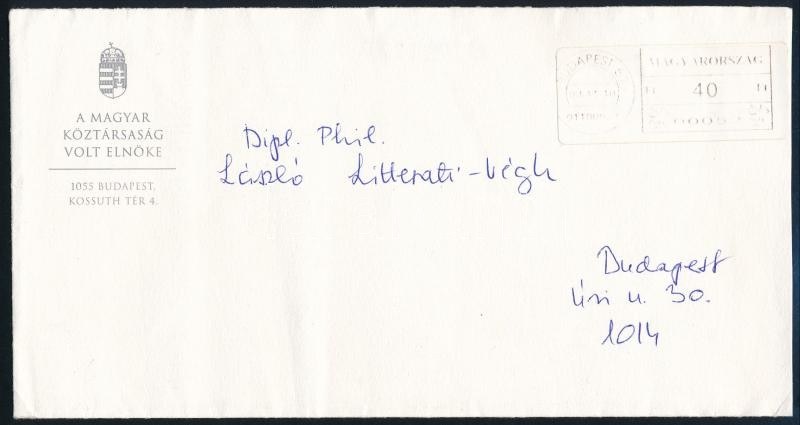 A MAGYAR
KÖZTÁRSASÁG
VOLT ELNÖKE
1055 BUDAPEST,
KOSSUTH TÉR 4.
BUDAPEST
MAGYARORSZÁG
Ft 40 Ft
Dipl. Phil.
László Litterati-Végh
Budapest
Úri u. 30.
1014